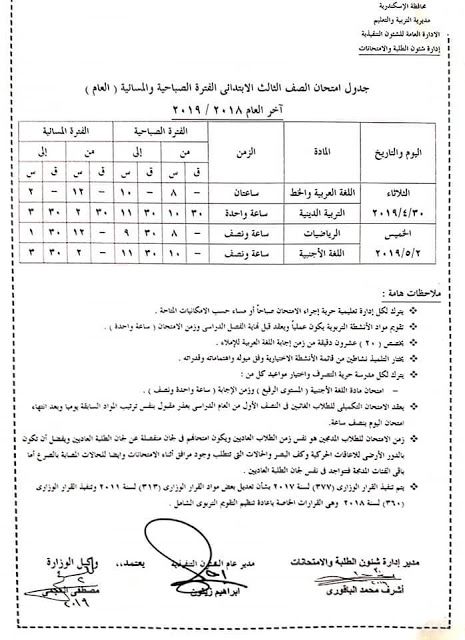 محافظة الإسكندرية
مديرية التربية والتعليم
الادارة العامة للشئون التنفيذية
إدارة شئون الطلبة والامتحانات
جدول امتحان الصف الثالث الابتدائى الفترة الصباحية والمسائية ( العام )
آخر العام ٢٠١٨ / ٢٠١٩
اليوم والتاريخ المادة الزمن الفترة الصباحية الفترة المسائية
من إلى من إلى
ق س ق س ق س ق س
الثلاثاء اللغة العربية والخط ساعتان – ٨ – ١٠ – ١٢ – ٢
٢٠١٩/٤/٣٠ التربية الدينية ساعة واحدة ٣٠ ١٠ ٣٠ ١١ ٣٠ ٢ ٣٠ ٣
الخميس الرياضيات ساعة ونصف – ٨ ٣٠ ٩ – ١٢ ٣٠ ١
٢٠١٩/٥/٢ اللغة الأجنبية ساعة ونصف – ١٠ ٣٠ ١١ – ٢ ٣٠ ٣
ملاحظات هامة :
يترك لكل إدارة تعليمية حرية إجراء الامتحان صباحاً أو مساء حسب الامكانيات المتاحة .
تقويم مواد الأنشطة التربوية يكون عملياً ويعقد قبل نهاية الفصل الدراسى وزمن الامتحان ( ساعة واحدة ) .
يخصص ( ٢٠ ) عشرون دقيقة من زمن إجابة اللغة العربية للإملاء .
يختار التلميذ نشاطين من قائمة الأنشطة الاختيارية وفق ميوله واهتماماته وقدراته .
يترك لكل مدرسة حرية التصرف واختيار مواعيد كل من :
– امتحان مادة اللغة الأجنبية ( المستوى الرفيع ) وزمن الإجابة ( ساعة واحدة ونصف ) .
يعقد الامتحان التكميلى للطلاب الغائبين فى النصف الأول من العام الدراسى بعذر مقبول بنفس ترتيب المواد السابقة يوميا وبعد انتهاء
امتحان اليوم بنصف ساعة.
زمن الامتحان للطلاب المدمجين هو نفس زمن الطلاب العاديين ويكون امتحانهم فى لجان منفصلة عن لجان الطلبة العاديين ويفضل أن تكون
بالدور الأرضى للاعاقات الحركية وكف البصر والحالات التى تتطلب وجود مرافق أثناء الامتحانات وايضا للحالات المصابة بالصرع أما
باقى الفئات المدمجة فتتواجد فى نفس لجان الطلبة العاديين .
يتم تنفيذ القرار الوزارى (٣٧٧) لسنة ٢٠١٧ بشأن تعديل بعض مواد القرار الوزارى (٣١٣) لسنة ٢٠١١ وتنفيذ القرار الوزارى
(٣٦٠) لسنة ٢٠١٨ وهى القرارات الخاصة بإعادة تنظيم التقويم التربوى الشامل .
مدير إدارة شئون الطلبة والامتحانات مدير عام الشئون التنفيذية يعتمد،، وكيل الوزارة
أشرف محمد الباقورى ابراهيم زيتون مصطفى
٢٠١٩